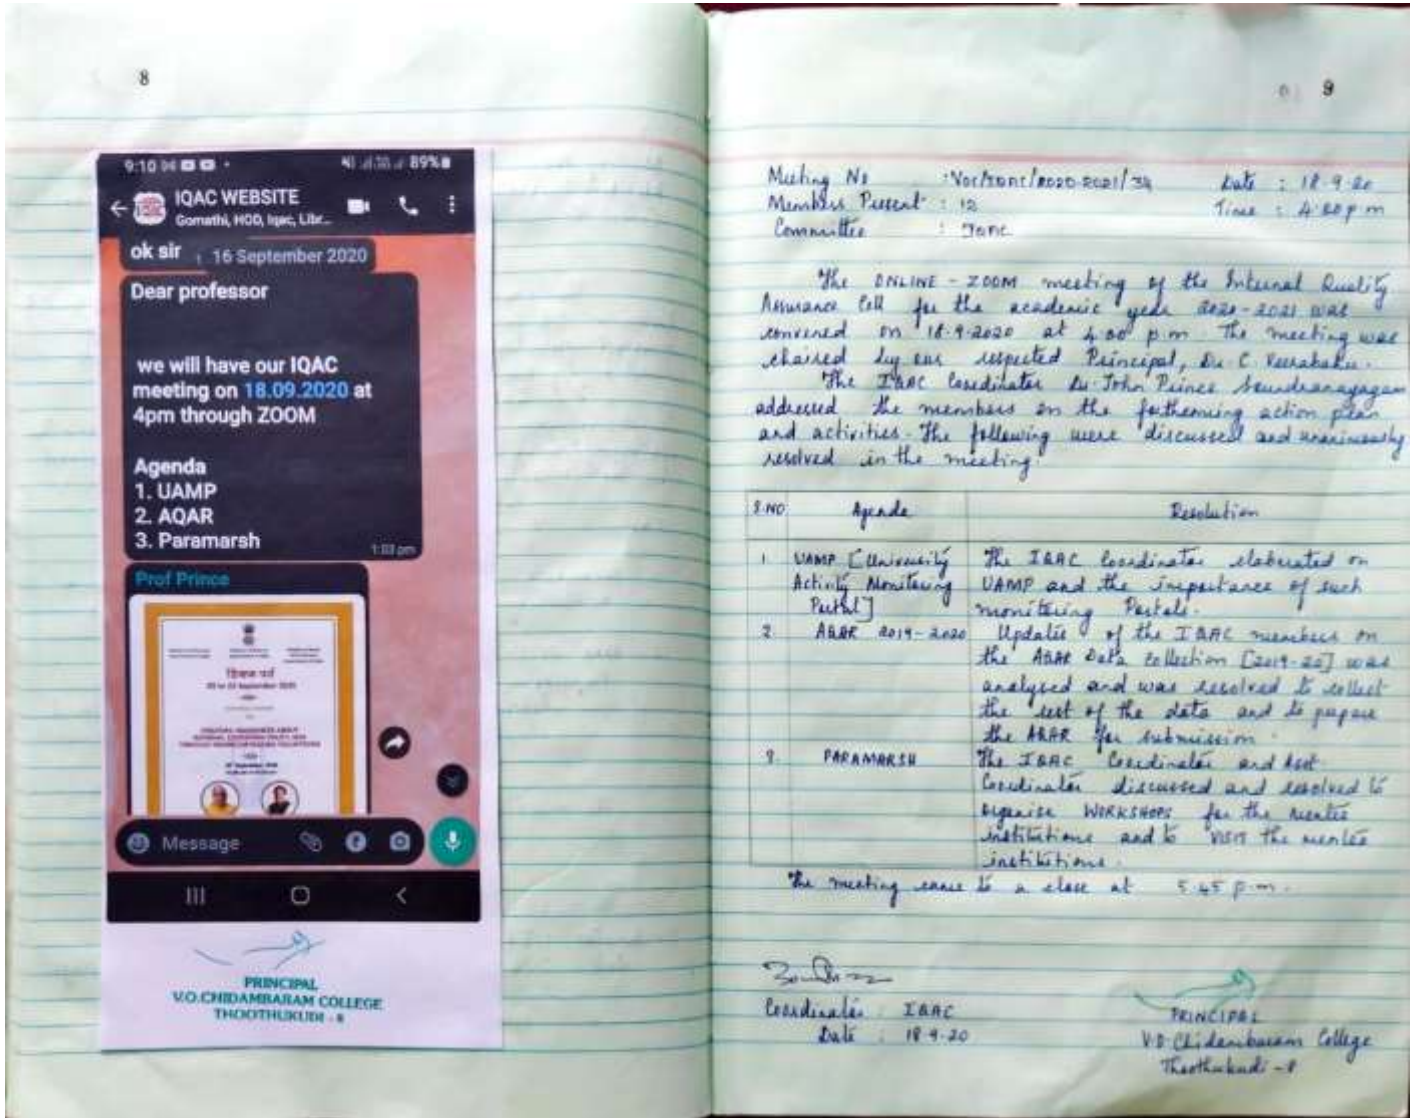 8
9:10
89%
IQAC WEBSITE
Gomathi, HOD, Iqac, Libr...
ok sir
16 September 2020
Dear professor
we will have our IQAC
meeting on 18.09.2020 at
4pm through ZOOM
Agenda
1. UAMP
2. AQAR
3. Paramarsh
1:03 pm
Prof Prince
Message
PRINCIPAL
V.O.CHIDAMBARAM COLLEGE
THOOTHUKUDI - 8
9
Meeting No : VOC/IQAC/2020-2021/34 Date : 18.9.20
Members Present : 12 Time : 4.00 p m
Committee : IQAC
The ONLINE - ZOOM meeting of the Internal Quality
Assurance Cell for the academic year 2020-2021 was
convened on 18.9.2020 at 4.00 p.m. The meeting was
chaired by our respected Principal, Dr. C. Veerabahu.
The IQAC Coordinator Dr. John Prince Soundranayagam
addressed the members on the forthcoming action plan
and activities. The following were discussed and unanimously
resolved in the meeting.
S.NO Agenda Resolution
1. UAMP [University The IQAC Coordinator elaborated on
Activity Monitoring UAMP and the importance of such
Portal] monitoring Portals.
2. AQAR 2019-2020 Updates of the IQAC members on
the AQAR Data Collection [2019-20] was
analysed and was resolved to collect
the rest of the data and to prepare
the AQAR for submission.
3. PARAMARSH The IQAC Coordinator and Asst
Coordinator discussed and resolved to
organise WORKSHOPS for the mentee
institutions and to VISIT the mentee
institutions.
The meeting came to a close at 5.45 p.m.
Coordinator : IQAC
Date : 18.9.20
PRINCIPAL
V.O. Chidambaram College
Thoothukudi - 8